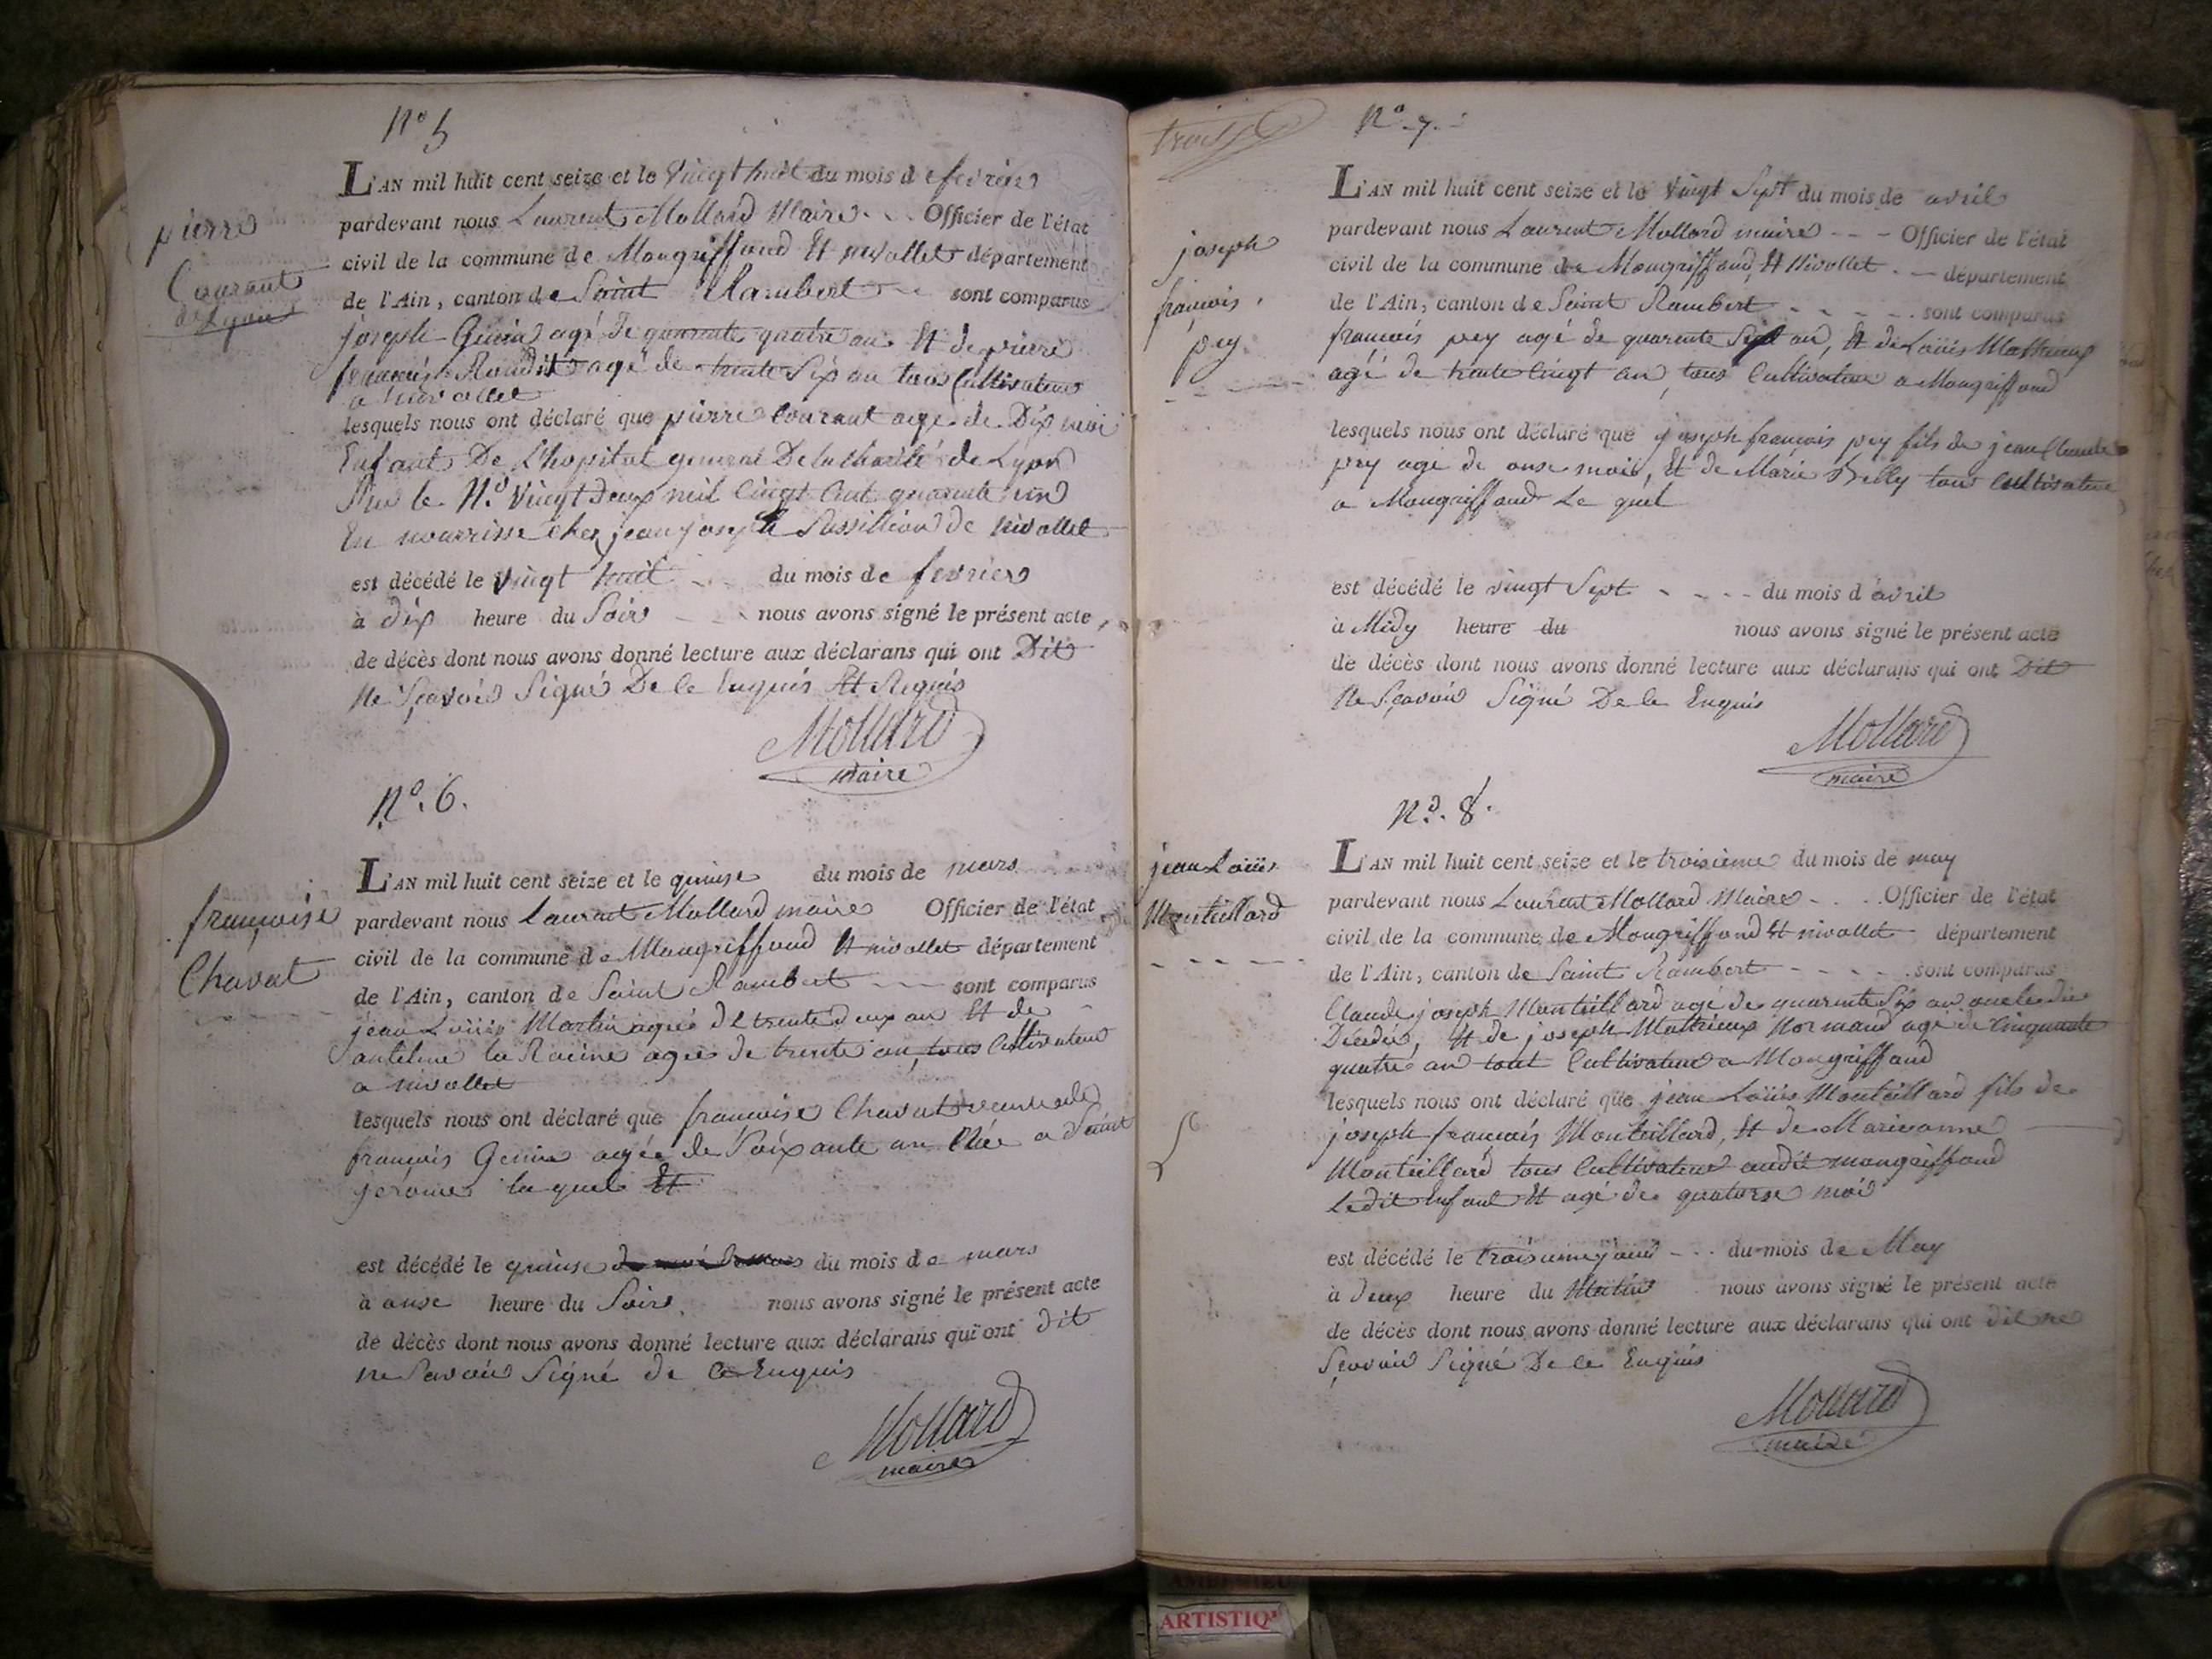 N.o 5
L'AN mil huit cent seize et le vingt huit du mois de fevrier
pardevant nous Laurent Mollard Maire Officier de l'état
civil de la commune de Mongriffond Et nivollet département
de l'Ain, canton de Saint Rambert sont comparus
joseph Genin agé de quarante quatre an Et de pierre
francois agé de trente Six an tous Cultivateur
a nivollet
pierre
Courant
de Lyon
lesquels nous ont déclaré que pierre Courant age de Dix moi
Enfant De L'hopital general De la charité de Lyon
Sur le N.o vingt deux mil Cinqt Cent quarante un
En nourrisse chez jean joseph de nivollet
est décédé le vingt huit du mois de fevrier
à dix heure du Soir nous avons signé le présent acte,
de décès dont nous avons donné lecture aux déclarans qui ont Dit
Ne Sçavoir Signé De ce Enquis Et Requis
Mollard
maire
N.o 6.
L'AN mil huit cent seize et le quinse du mois de mars
pardevant nous Laurent Mollard maire Officier de l'état
civil de la commune de Mongriffond Et nivollet département
de l'Ain, canton de Saint Rambert sont comparus
jean Loüis Martin agée de trente deux an Et de
antelme la Racine agée de trente an, tous Cultivateur
a nivollet
françoise
Chavat
lesquels nous ont déclaré que francoise Chavat veuve de
francois Genin agée de Soixante an Née a Saint
jerome laquel Et
est décédé le quinse du mois de mars
à onse heure du Soir nous avons signé le présent acte
de décès dont nous avons donné lecture aux déclarans qui ont dit
ne Savoir Signé de ce Enquis
Mollard
maire
trois
N.o 7.
L'AN mil huit cent seize et le vingt Sept du mois de avril
pardevant nous Laurent Mollard maire Officier de l'état
civil de la commune de Mongriffond Et Nivollet département
de l'Ain, canton de Saint Rambert sont comparus
francois pey agé de quarente Sept an, Et de Loüis Mathieux
agé de trente Cinqt an, tous Cultivateur a Mongriffond
joseph
francois
pey
lesquels nous ont déclaré que joseph francois pey fils de jean Claude
pey age de onse mois, Et de Marie Billy tous Cultivateur
a Mongriffond Le quel
est décédé le vingt Sept du mois d'avril
à Midy heure du nous avons signé le présent acte
de décès dont nous avons donné lecture aux déclarans qui ont Dit
Ne Sçavoir Signé De ce Enquis
Mollard
maire
N.o 8.
L'AN mil huit cent seize et le troisieme du mois de may
pardevant nous Laurent Mollard Maire Officier de l'état
civil de la commune de Mongriffond Et nivollet département
de l'Ain, canton de Saint Rambert sont comparus
Claude joseph Monteillard agé de quarente Six an oncle du
Décédé, Et de joseph Mathieux Normand agé de Cinquante
quatre an tout Cultivateur a Mongriffond
jean Loüis
Monteillard
lesquels nous ont déclaré que jean Loüis Monteillard fils de
joseph francois Monteillard, Et de Marieanne
Monteillard tous Cultivateur audit mongriffond
Ledit Enfant Et agé de quatorse moi
est décédé le troisieme jour du mois de May
à Deux heure du Matin nous avons signé le présent acte
de décès dont nous avons donné lecture aux déclarans qui ont dit ne
Sçavoir Signé De ce Enquis
Mollard
maire
ARTISTIQ